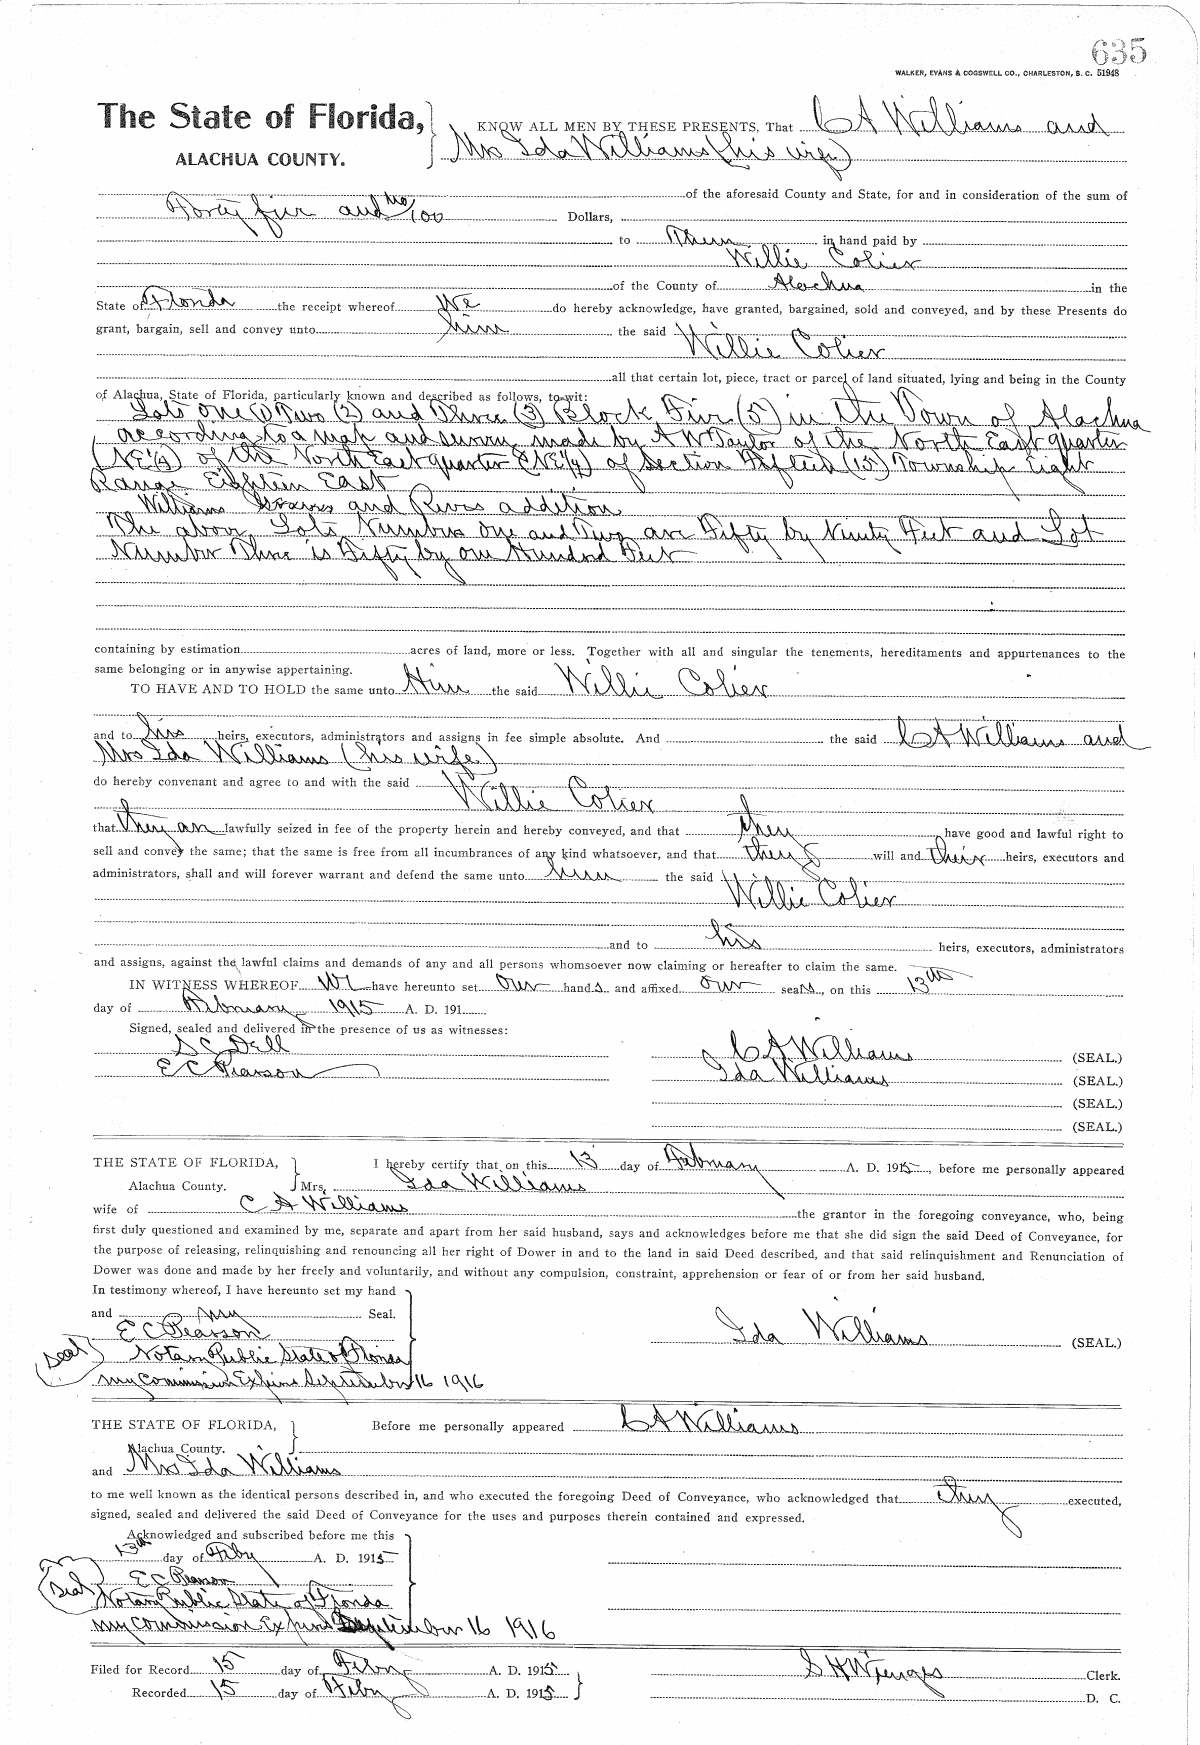 635
WALKER, EVANS & COGSWELL CO., CHARLESTON, S. C. 51948
The State of Florida,
ALACHUA COUNTY.
KNOW ALL MEN BY THESE PRESENTS, That C A Williams and
Mrs Ida Williams (his wife)
of the aforesaid County and State, for and in consideration of the sum of
Forty five and no/100 Dollars,
to Them in hand paid by
Willie Colier
of the County of Alachua in the
State of Florida the receipt whereof We do hereby acknowledge, have granted, bargained, sold and conveyed, and by these Presents do
grant, bargain, sell and convey unto him the said Willie Colier
all that certain lot, piece, tract or parcel of land situated, lying and being in the County
of Alachua, State of Florida, particularly known and described as follows, to-wit:
Lots One (1) Two (2) and Three (3) Block Five (5) in the Town of Alachua
according to a map and survey made by A W Taylor of the North East quarter
(NE 1/4) of the North East quarter (NE 1/4) of Section Fifteen (15) Township Eight
Range Eighteen East
Williams and Rivers addition
The above Lots Numbers One and Two are Fifty by Ninety Feet and Lot
Number Three is Fifty by one Hundred Feet
containing by estimation acres of land, more or less. Together with all and singular the tenements, hereditaments and appurtenances to the
same belonging or in anywise appertaining.
TO HAVE AND TO HOLD the same unto Him the said Willie Colier
and to his heirs, executors, administrators and assigns in fee simple absolute. And the said C A Williams and
Mrs Ida Williams (his wife)
do hereby convenant and agree to and with the said Willie Colier
that they are lawfully seized in fee of the property herein and hereby conveyed, and that they have good and lawful right to
sell and convey the same; that the same is free from all incumbrances of any kind whatsoever, and that they will and their heirs, executors and
administrators, shall and will forever warrant and defend the same unto him the said Willie Colier
and to his heirs, executors, administrators
and assigns, against the lawful claims and demands of any and all persons whomsoever now claiming or hereafter to claim the same.
IN WITNESS WHEREOF We have hereunto set our hands and affixed our seals, on this 13th
day of February 1915 A. D. 191
Signed, sealed and delivered in the presence of us as witnesses:
S C Dell
E C Pearson
C A Williams (SEAL.)
Ida Williams (SEAL.)
(SEAL.)
(SEAL.)
THE STATE OF FLORIDA,
Alachua County.
I hereby certify that on this 13 day of February A. D. 1915, before me personally appeared
Mrs. Ida Williams
wife of C A Williams the grantor in the foregoing conveyance, who, being
first duly questioned and examined by me, separate and apart from her said husband, says and acknowledges before me that she did sign the said Deed of Conveyance, for
the purpose of releasing, relinquishing and renouncing all her right of Dower in and to the land in said Deed described, and that said relinquishment and Renunciation of
Dower was done and made by her freely and voluntarily, and without any compulsion, constraint, apprehension or fear of or from her said husband.
In testimony whereof, I have hereunto set my hand
and my Seal.
E C Pearson
Ida Williams (SEAL.)
Seal Notary Public State of Florida
My Commission Expires September 16 1916
THE STATE OF FLORIDA,
Alachua County.
Before me personally appeared C A Williams
and Mrs Ida Williams
to me well known as the identical persons described in, and who executed the foregoing Deed of Conveyance, who acknowledged that they executed,
signed, sealed and delivered the said Deed of Conveyance for the uses and purposes therein contained and expressed.
Acknowledged and subscribed before me this
13th day of Feby A. D. 1915
E C Pearson
Seal Notary Public State of Florida
My Commission Expires September 16 1916
Filed for Record 15 day of Feby A. D. 1915
S H Wienges Clerk.
Recorded 15 day of Feby A. D. 1915
D. C.